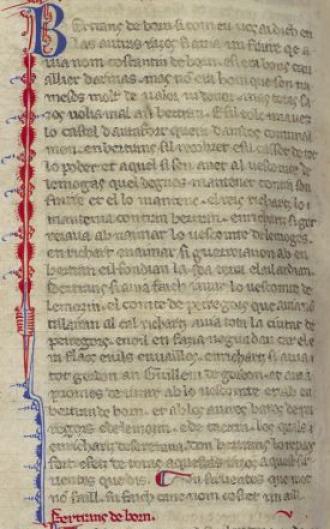 Bertrans de born si com eu vos ai dich en
las autras razos si auia un fraire qe a
uia nom costantin de born. et era bons caua
allier darmas. mas no era hom que son na
mesés molt de ualor ni donor. mas totas sa
zos uolia mal an bertran. E sil tolc una uez
lo castel dautafort quera damdos comunal
men. en bertrans sil recobret esil casset de tot
lo poder et aquel si sen anet al uescomte de
lemogas quel degues mantener contra son
fraire et el lo mantenc. el reis richartz lo
mantenia contra bertran. en richartz si guer
reiaua ab naimar lo uescomte de lemoges.
en richart en aimar si guerreiauon ab en
bertran eil fondian la soa terra eil ardian.
bertrans si auia faich iurar lo uescomte de
lemozin. el comte de peiregors que auia nom
tallairan al cal richartz auia tota la ciutat de
peiregors. en oil en fazia negun dan car el e
ra flacs e uils e nuaillos. en richartz si auia
tot gordon an Guillem de gordon. et auia
promes de iurar ab lo uescomte et ab en
bertran de born. et ab los autres baros de pei
regors e de lemozin. e de caerci. los quals
en richartz deseretaua. don bertrans lo repres
fort e fetz de totas aquestas razos aquest sir
uentes que dis. Un siruentes que mot
no faill. ai faich canc nom costet un aill.
Bertrans de born.